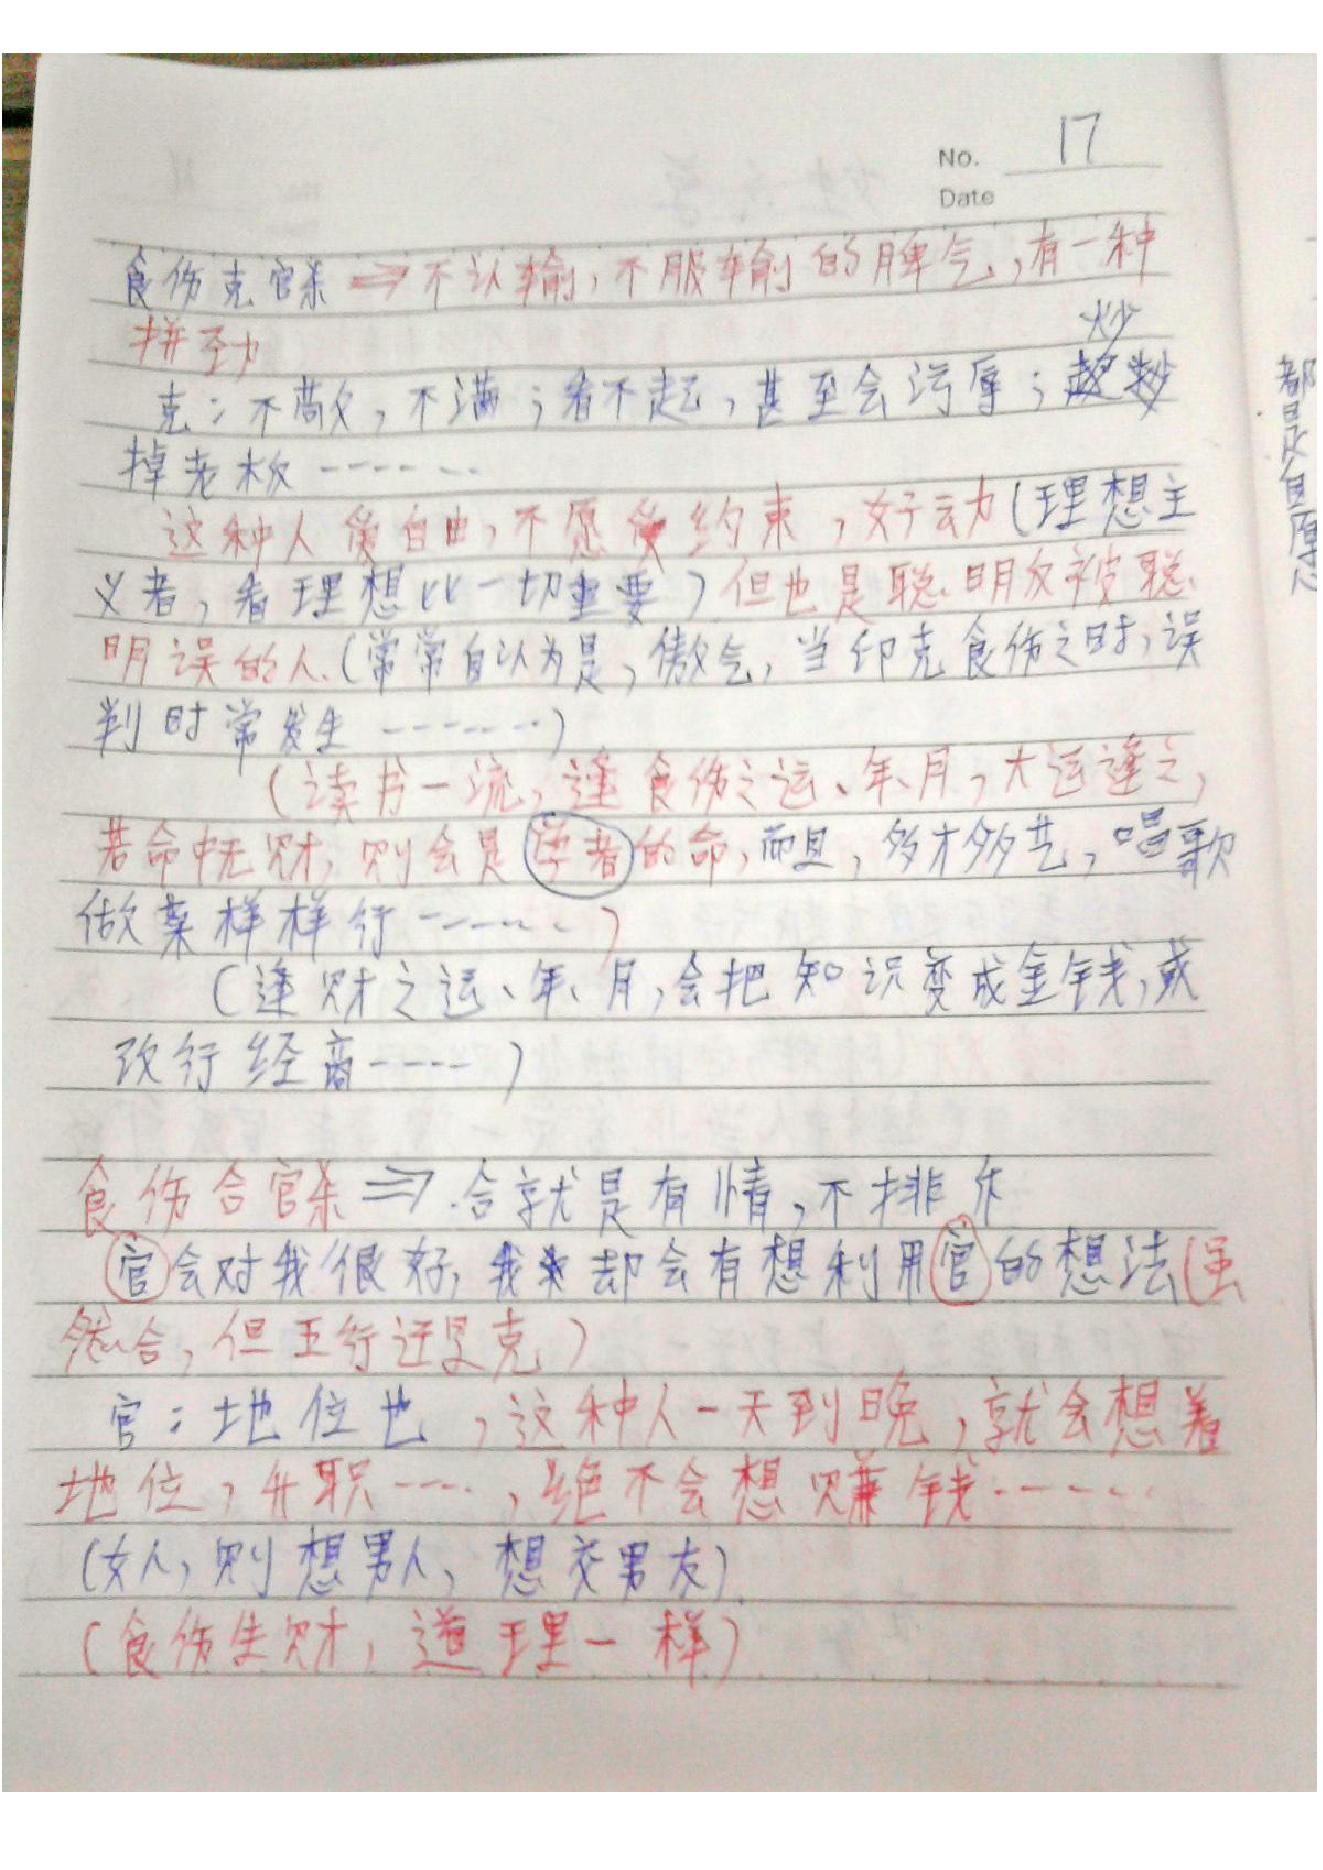 No. 17
Date
食伤克官杀⇒不认输,不服输的脾气,有一种
拼劲
炒
克:不敬,不满;看不起,甚至会污辱;
掉老板-------
这种人 自由,不愿 约束,好动(理想主
义者,看理想比一切重要)但也是聪明反被聪
明误的人.(常常自以为是,傲气,当印克食伤之时,误
判时常发生-------)
(读书一流,逢食伤之运、年、月,大运逢之,
若命中无财,则会是学者的命,而且,多才多艺,唱歌
做菜样样行-------)
(逢财之运、年、月,会把知识变成金钱,或
改行经商-----)
食伤合官杀⇒合就是有情,不排斥
官会对我很好,我却会有想利用官的想法(虽
然合,但五行还是克)
官:地位也,这种人一天到晚,就会想着
地位,升职----,绝不会想赚钱------
(女人,则想男人,想交男友)
(食伤生财,道理一样)
都是自愿